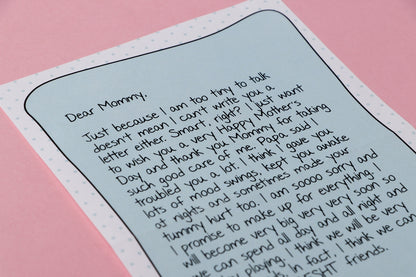 Dear Mommy,
Just because I am too tiny to talk
doesn't mean I can't write you a
letter either. Smart, right? I just want
to wish you a very Happy Mother's
Day and thank you Mommy for taking
such good care of me. Papa said I
troubled you a lot. I think I gave you
lots of mood swings, kept you awake
at nights and sometimes made your
tummy hurt too. I am soooo sorry and
I promise to make up for everything. I
will become very big very very soon so
we can spend all day and all night and
playing. I think we will be very
in fact, I think we can
friends.